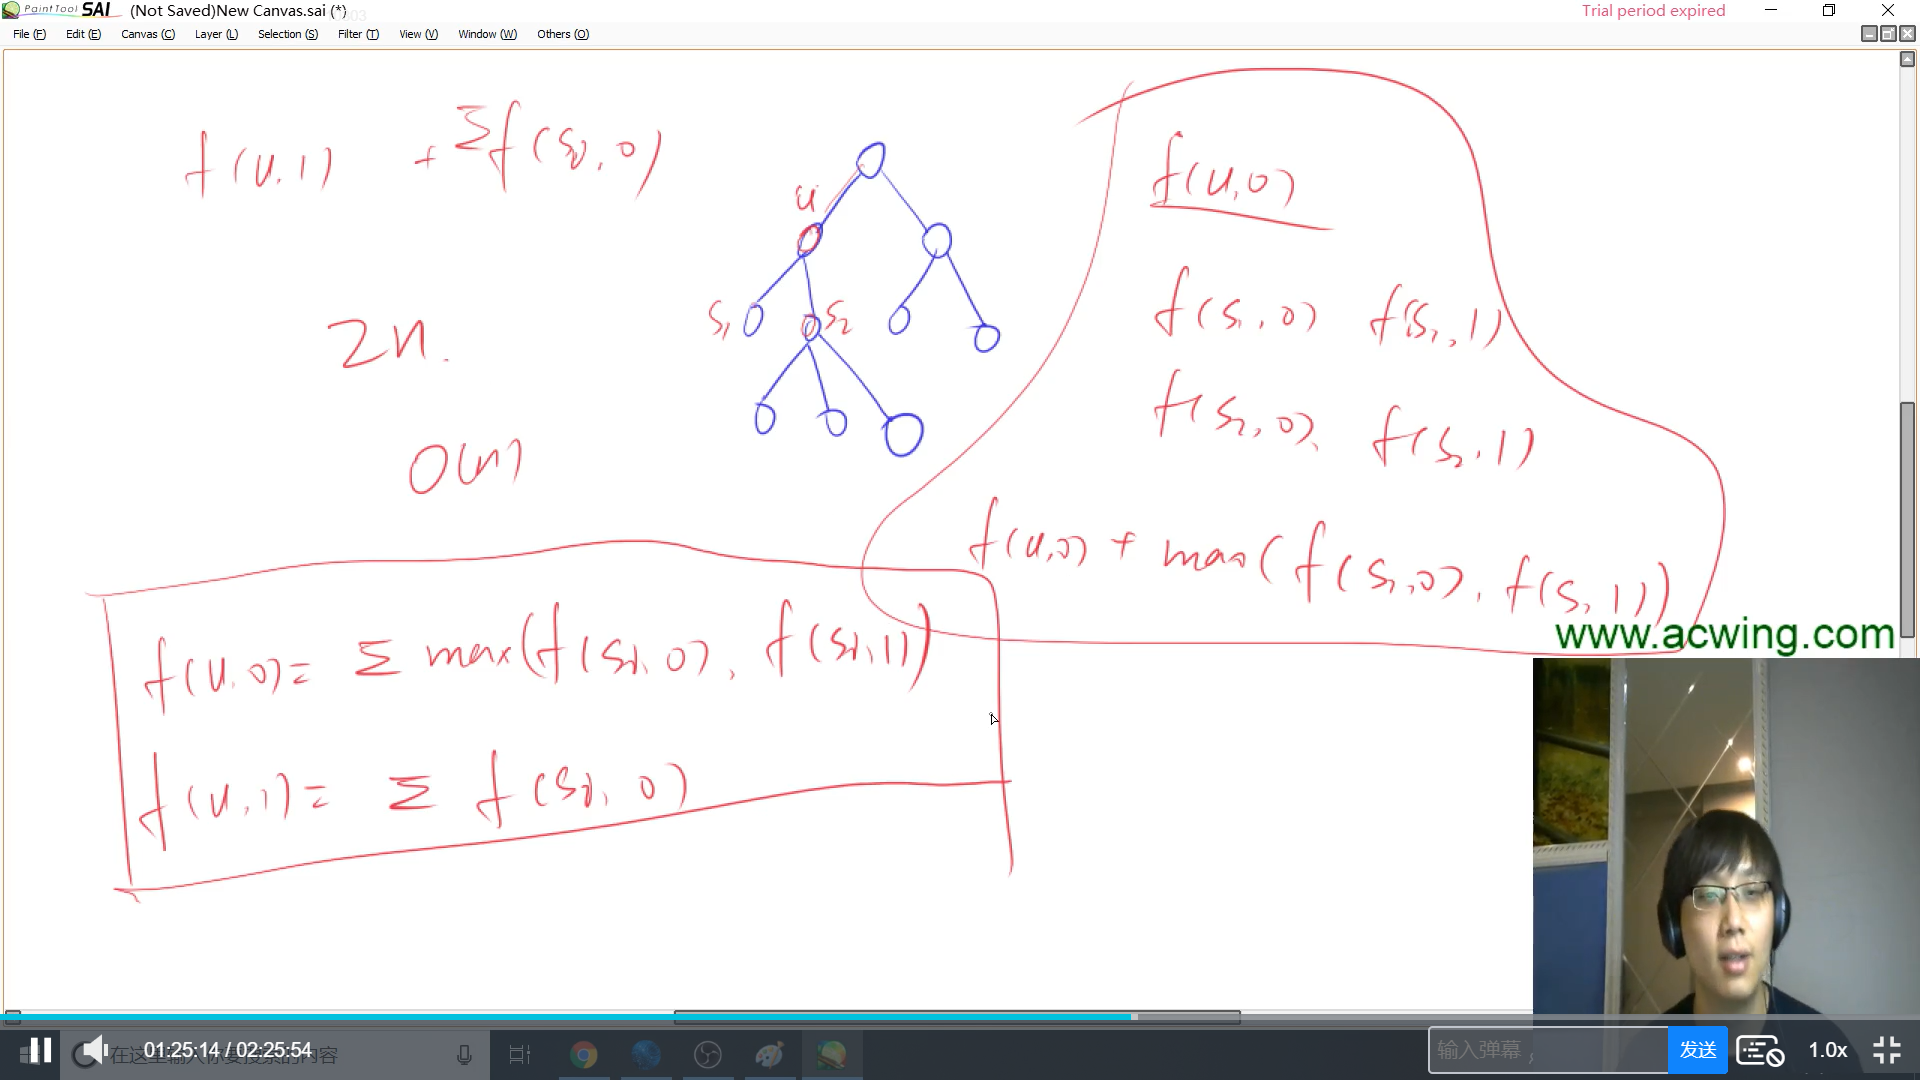 PaintTool SAI (Not Saved)New Canvas.sai (*) Trial period expired
File (F) Edit (E) Canvas (C) Layer (L) Selection (S) Filter (T) View (V) Window (W) Others (O)
f(u,1) + Σf(si,0)
u
S1 S2
2n.
O(n)
f(u,0)
f(s1,0) f(s1,1)
f(s2,0), f(s2,1)
f(u,0) + max(f(s1,0), f(s1,1))
f(u,0)= Σ max(f(si,0), f(si,1))
f(u,1)= Σ f(si,0)
www.acwing.com
01:25:14 / 02:25:54
输入弹幕
发送
1.0x